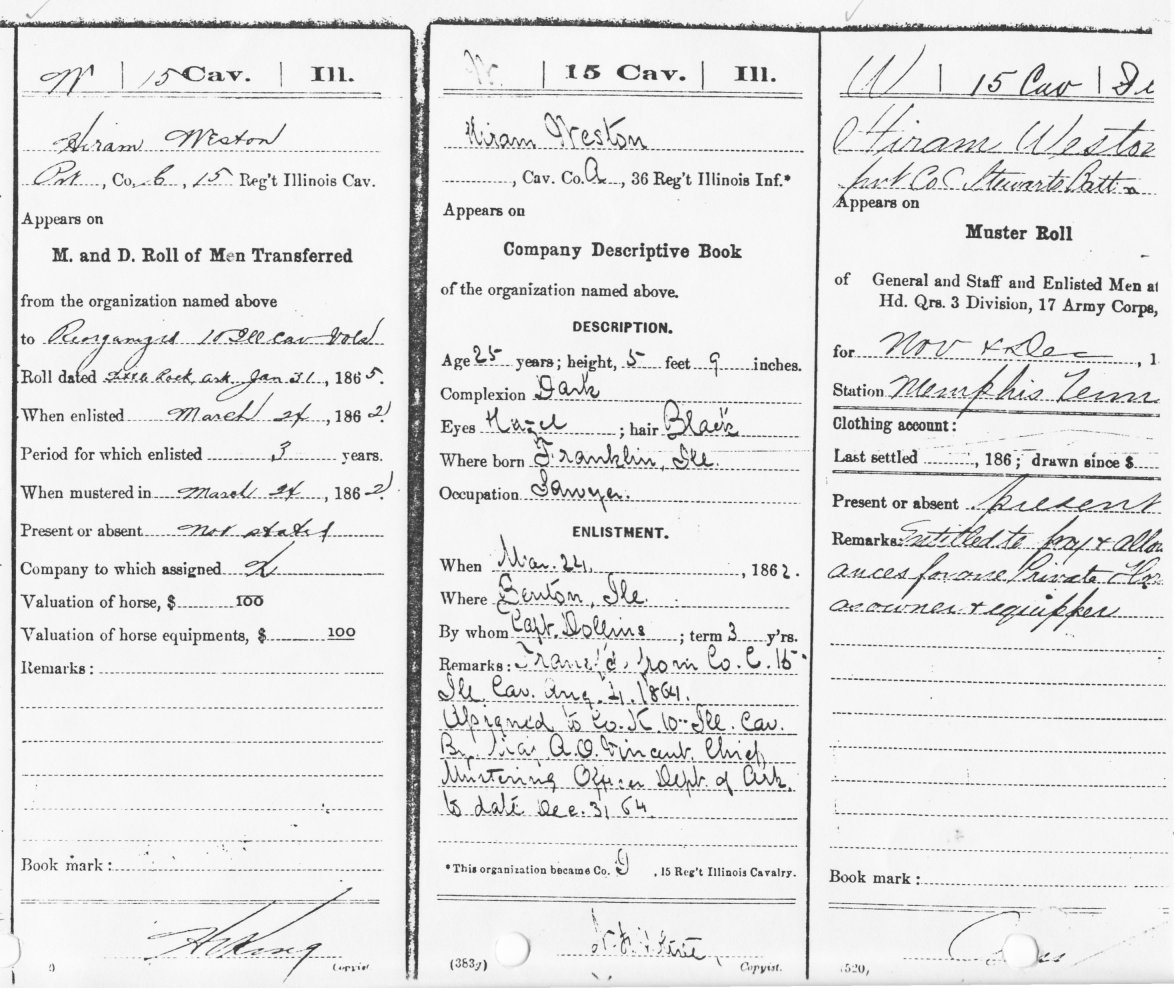 W | 15 Cav. | Ill.
Hiram Weston
Pvt, Co. C, 15 Reg't Illinois Cav.
Appears on
M. and D. Roll of Men Transferred
from the organization named above
to Reorganized 10 Ill Cav Vols
Roll dated Little Rock, Ark. Jan 31, 1865.
When enlisted March 24, 1862
Period for which enlisted 3 years.
When mustered in March 24, 1862
Present or absent Not stated
Company to which assigned K
Valuation of horse, $ 100
Valuation of horse equipments, $ 100
Remarks:
Book mark:
HKing
Copyist.
W | 15 Cav. | Ill.
Hiram Weston
, Cav. Co. A, 36 Reg't Illinois Inf.*
Appears on
Company Descriptive Book
of the organization named above.
DESCRIPTION.
Age 25 years; height, 5 feet 9 inches.
Complexion Dark
Eyes Hazel; hair Black
Where born Franklin, Ill.
Occupation Sawyer.
ENLISTMENT.
When Mar. 24, 1862.
Where Benton, Ill.
By whom Capt. Dollins; term 3 y'rs.
Remarks: Transf'd from Co. C. 15
Ill Cav. Aug. 4, 1864.
Assigned to Co. K 10" Ill. Cav.
By A.O. Vincent. Chief
Mustering Officer Dept. of Ark.
to date Dec. 31 64.
*This organization became Co. , 15 Reg't Illinois Cavalry.
(383g)
Copyist.
W | 15 Cav |
Hiram Weston
pvt Co C Stewarts Batt n
Appears on
Muster Roll
of General and Staff and Enlisted Men at
Hd. Qrs. 3 Division, 17 Army Corps,
for Nov & Dec, 1
Station Memphis Tenn
Clothing account:
Last settled , 186 ; drawn since $
Present or absent present
Remarks: Entitled to pay & allow
ances for one Private Hor
as owner & equipper
Book mark:
(520)